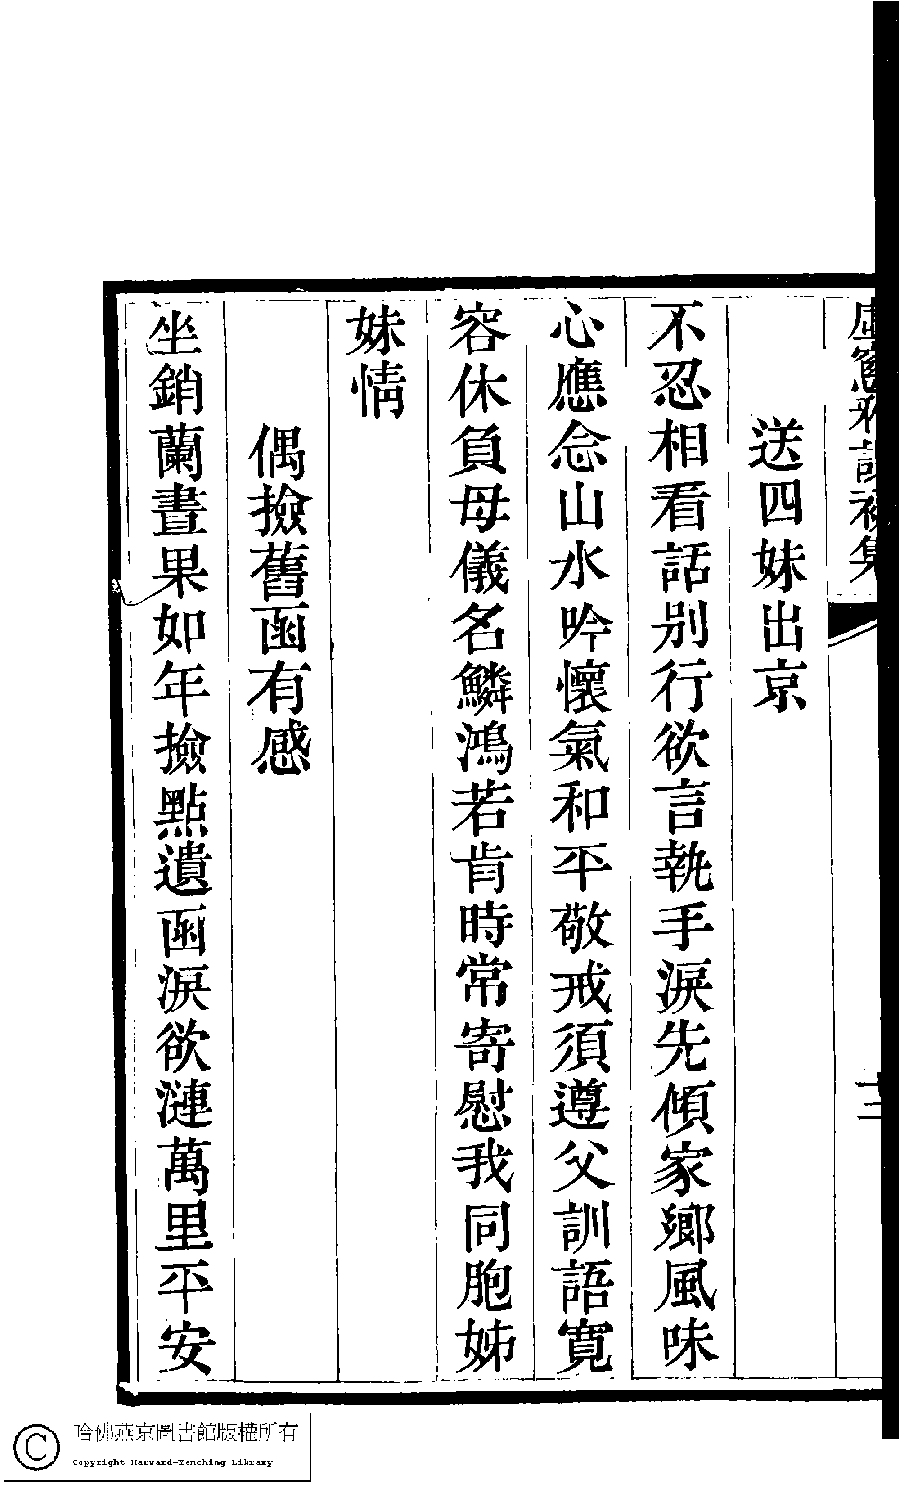 送四妹出京
不忍相看話別行欲言執手淚先傾家鄉風味
心應念山水吟懷氣和平敬戒須遵父訓語寬
容休負母儀名鱗鴻若肯時常寄慰我同胞姊
妹情
偶撿舊函有感
坐銷蘭晝果如年撿點遺函淚欲漣萬里平安
哈佛燕京圖書館版權所有
Copyright Harvard-Yenching Library